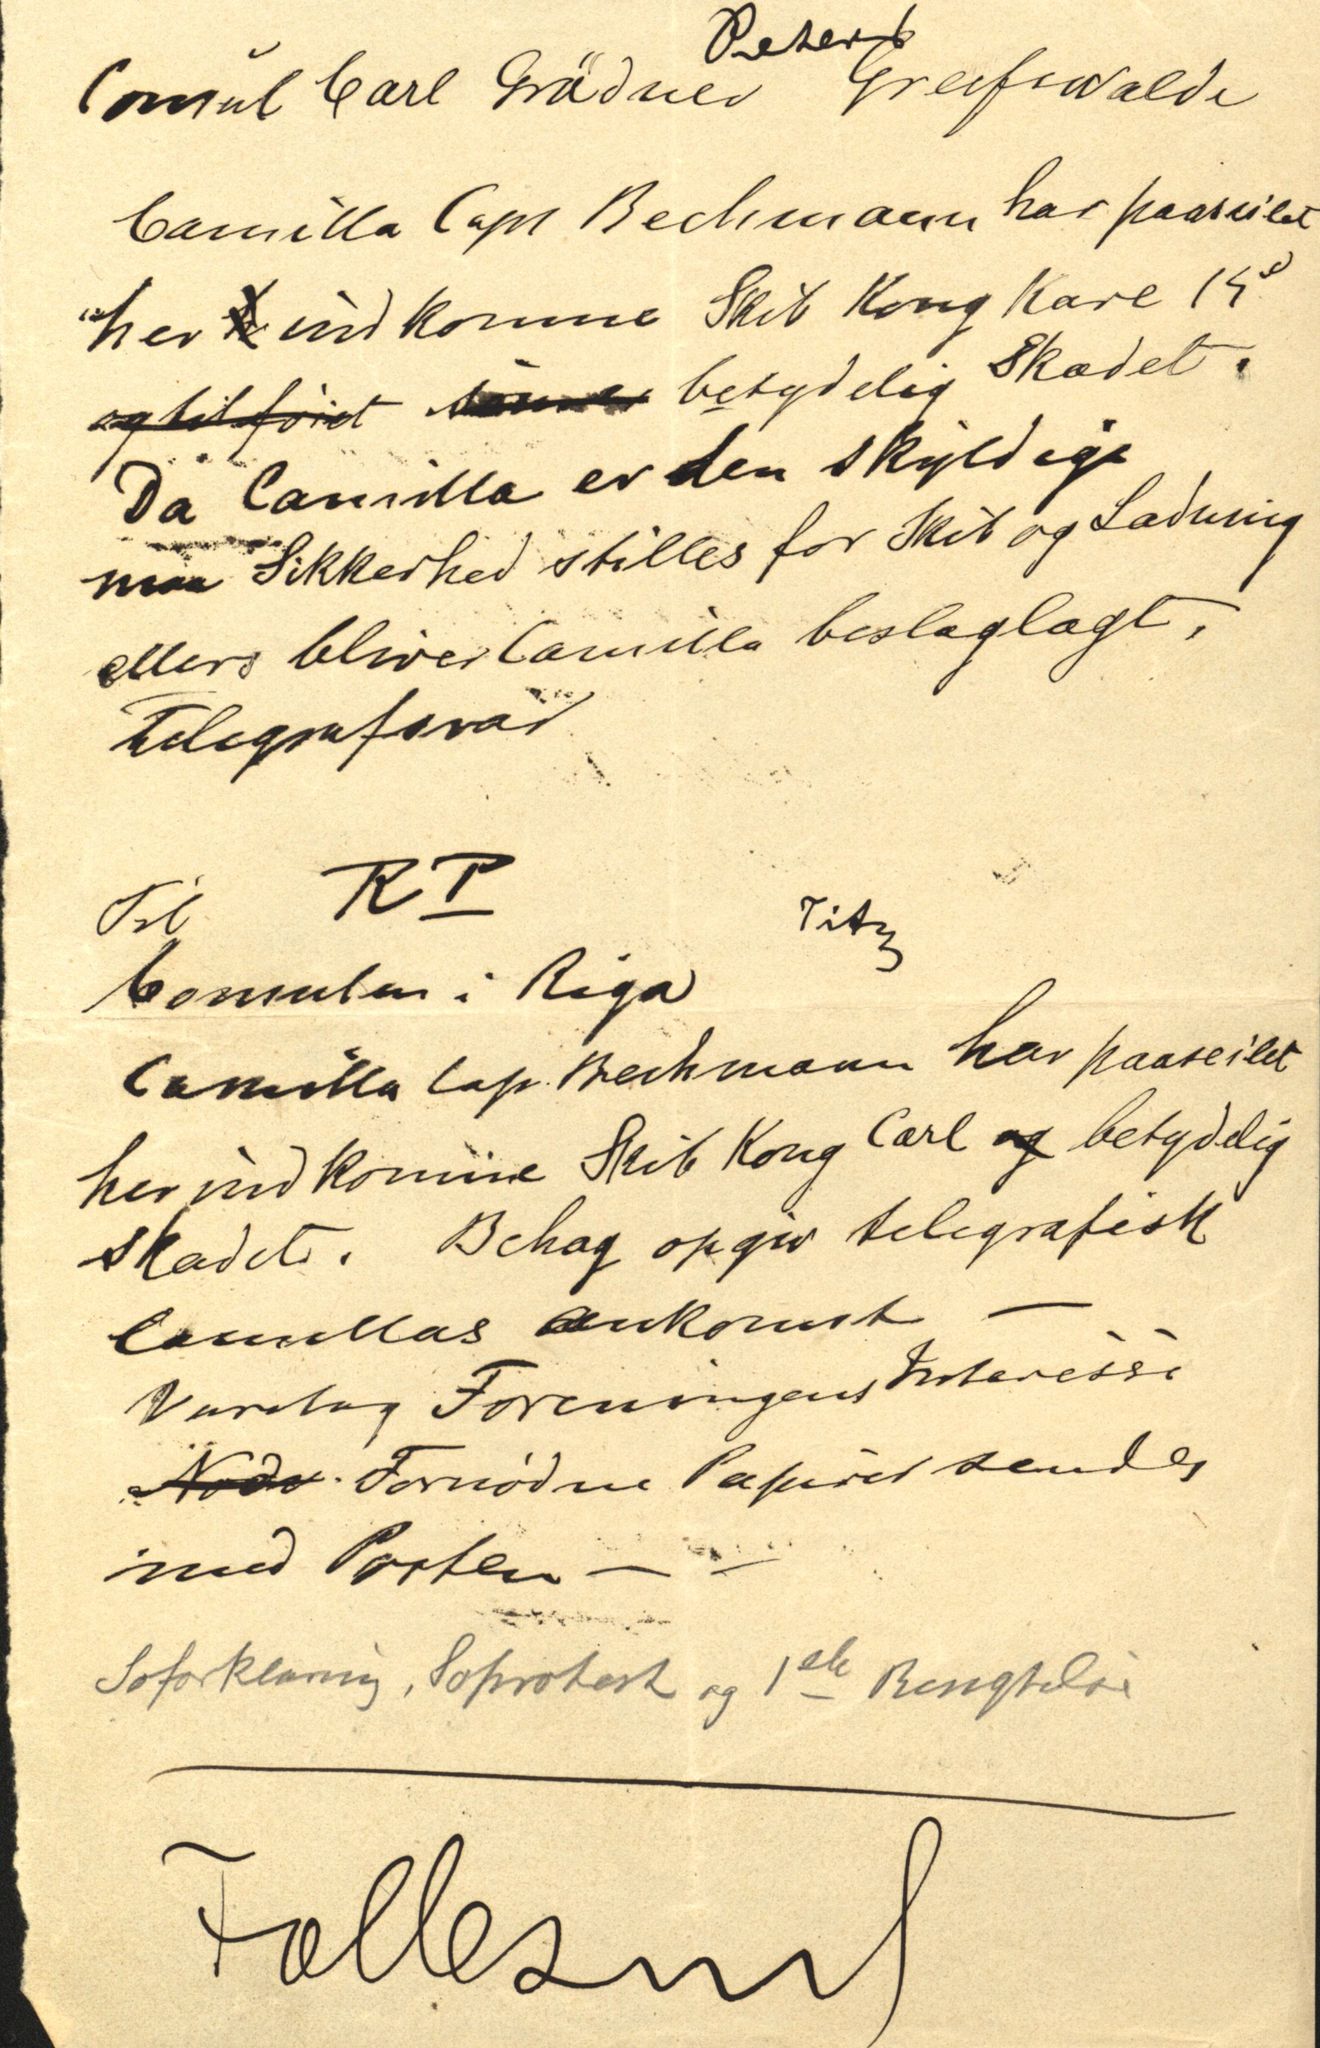 Peters
Consul Carl Grädner Greifswalde
Camilla Capt Bechmann har paaseilet
her indkomne Skib Kong Karl 15d
og tilføiet betydelig Skadet.
Da Camilla er den skyldige
maa Sikkerhed stilles for Skib og Ladning
ellers bliver Camilla beslaglagt.
Telegrafsvar
RP
Til Titz
Consulen i Riga
Camilla Cap. Bechmann har paaseilet
her indkomne Skib Kong Carl og betydelig
skadet. Behag opgiv telegrafisk
Camillas ankomst —
Varetag Foreningens Interesse
Fornødne Papirer sendes
med Posten — -
Søforklaring, Søprotest og 1ste